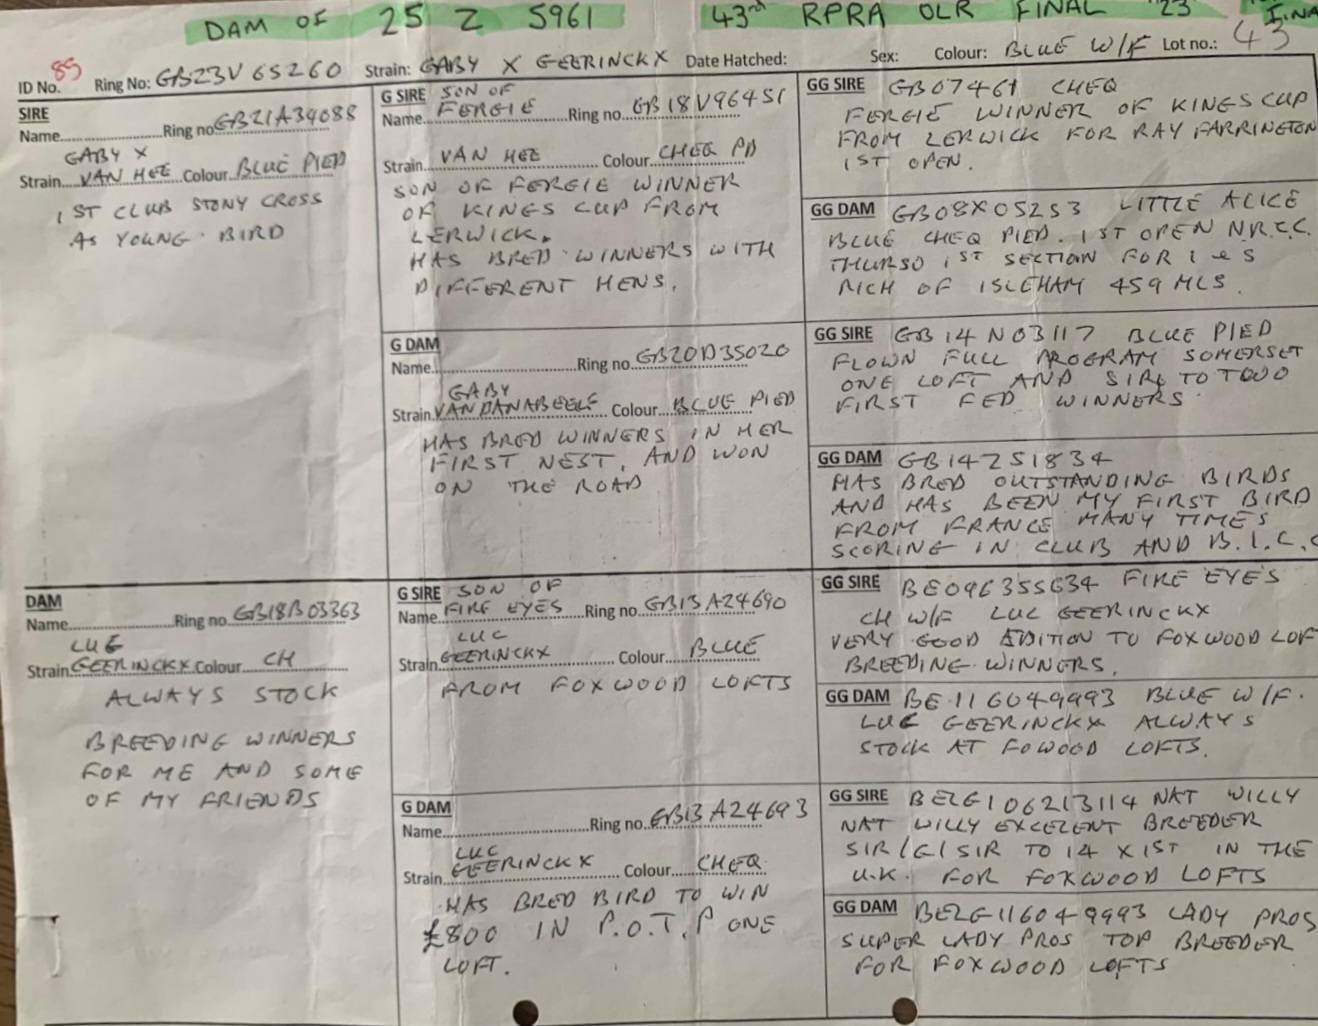 DAM OF 25 Z 5961 43rd RPRA OLR FINAL '23
ID No. 85 Ring No: GB23V65260 Strain: GABY X GEERINCKX Date Hatched: Sex: Colour: BLUE W/F Lot no.: 43
SIRE
Name Ring no GB21A34088
GABY X
Strain VAN HEE Colour BLUE PIED
1ST CLUB STONY CROSS
AS YOUNG BIRD
G SIRE SON OF
Name FERGIE Ring no GB18V96451
Strain VAN HEE Colour CHEQ PD
SON OF FERGIE WINNER
OF KINGS CUP FROM
LERWICK.
HAS BRED WINNERS WITH
DIFFERENT HENS.
G DAM
Name Ring no GB20D35020
GABY
Strain VANDANABEELE Colour BLUE PIED
HAS BRED WINNERS IN HER
FIRST NEST, AND WON
ON THE ROAD
GG SIRE GB07461 CHEQ
FERGIE WINNER OF KINGS CUP
FROM LERWICK FOR RAY FARRINGTON
1ST OPEN.
GG DAM GB08X05253 LITTLE ALICE
BLUE CHEQ PIED. 1ST OPEN N.R.C.C.
THURSO 1ST SECTION FOR L e S
RICH OF ISLEHAM 459 MLS.
GG SIRE GB14N03117 BLUE PIED
FLOWN FULL PROGRAM SOMERSET
ONE LOFT AND SIRE TO TWO
FIRST FED WINNERS
GG DAM GB14Z51834
HAS BRED OUTSTANDING BIRDS
AND HAS BEEN MY FIRST BIRD
FROM FRANCE MANY TIMES
SCORING IN CLUB AND B.I.C.C
DAM
Name Ring no GB18B03363
LUC
Strain GEERINCKX Colour CH
ALWAYS STOCK
BREEDING WINNERS
FOR ME AND SOME
OF MY FRIENDS
G SIRE SON OF
Name FIRE EYES Ring no GB13A24690
LUC
Strain GEERINCKX Colour BLUE
FROM FOXWOOD LOFTS
G DAM
Name Ring no GB13A24693
LUC
Strain GEERINCKX Colour CHEQ
HAS BRED BIRD TO WIN
£800 IN P.O.T.P ONE
LOFT.
GG SIRE BE096355634 FIRE EYES
CH W/F LUC GEERINCKX
VERY GOOD ADITION TO FOXWOOD LOF
BREEDING WINNERS.
GG DAM BE.116049993 BLUE W/F.
LUC GEERINCKX ALWAYS
STOCK AT FOWOOD LOFTS.
GG SIRE BELG106213114 NAT WILLY
NAT WILLY EXCELENT BREEDER
SIR/G/SIR TO 14 X 1ST IN THE
U.K. FOR FOXWOOD LOFTS
GG DAM BELG116049993 LADY PROS
SUPER LADY PROS TOP BREEDER
FOR FOXWOOD LOFTS